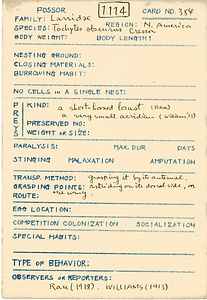 POSSOR 1114 CARD NO. 384
FAMILY: Larridae REGION: N. America
SPECIES: Tachytes obscurus Cresson
BODY WEIGHT: BODY LENGTH:
NESTING GROUND:
CLOSING MATERIALS:
BURROWING HABIT:
NO. CELLS IN A SINGLE NEST:
PREY KIND: a short-horned locust (Rau)
a very small acridian (Williams '13)
PRESERVED NO:
WEIGHT OR SIZE:
PARALYSIS: MAX. DUR. DAYS
STINGING MALAXATION AMPUTATION
TRANSP. METHOD: grasping it by its antennae,
GRASPING POINTS: astriding on its dorsal side, on
ROUTE: the wing.
EGG LOCATION:
COMPETITION COLONIZATION SOCIALIZATION
SPECIAL HABITS:
TYPE OF BEHAVIOR:
OBSERVERS OR REPORTERS:
Rau (1918). WILLIAMS (1913)